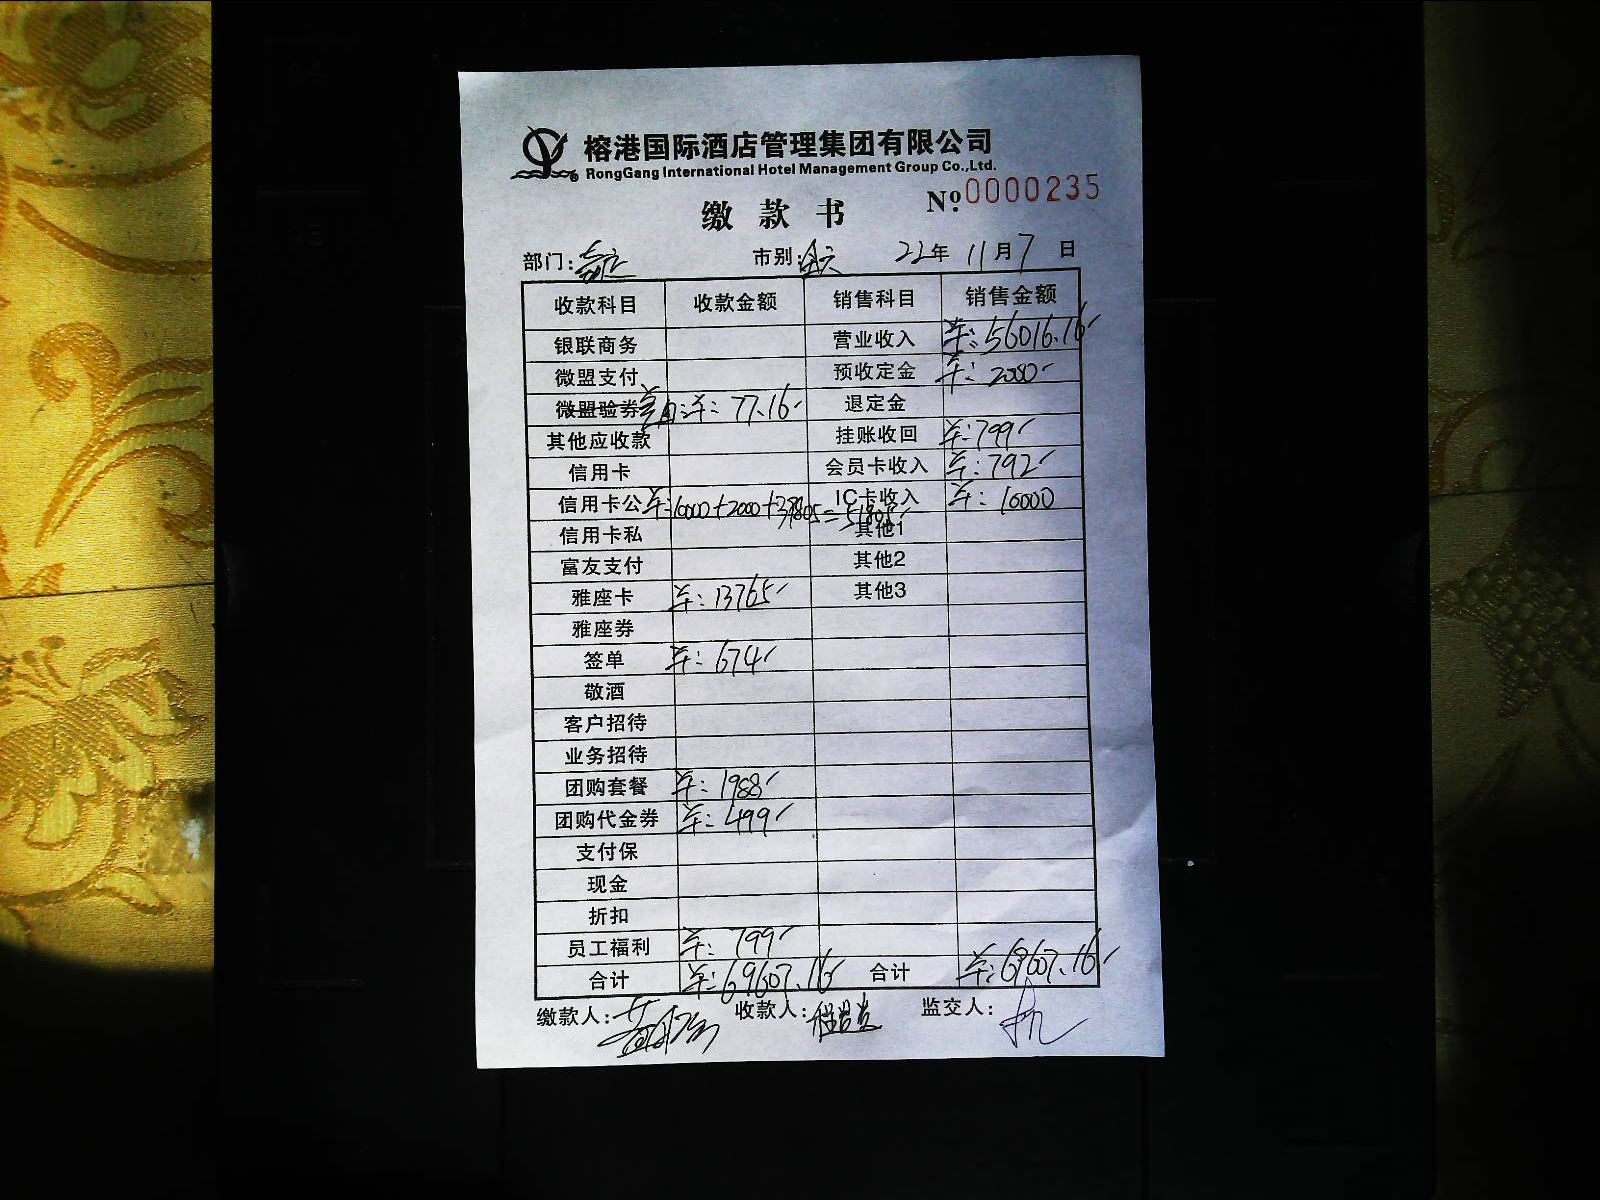 榕港国际酒店管理集团有限公司
RongGang International Hotel Management Group Co.,Ltd.
缴款书
№ 0000235
部门: 市别: 22年 11月 7日
收款科目 收款金额 销售科目 销售金额
银联商务 营业收入 ¥:56016.16
微盟支付 预收定金 ¥:2000
微盟验券 ¥:77.16 退定金
其他应收款 挂账收回 ¥:799
信用卡 会员卡收入 ¥:792
信用卡公 ¥:10000+2000+39805=51805 IC卡收入 ¥:10000
信用卡私 其他1
富友支付 其他2
雅座卡 ¥:13765 其他3
雅座券
签单 ¥:674
敬酒
客户招待
业务招待
团购套餐 ¥:1988
团购代金券 ¥:499
支付保
现金
折扣
员工福利 ¥:799
合计 ¥:69607.16 合计 ¥:69607.16
缴款人: 收款人: 监交人: